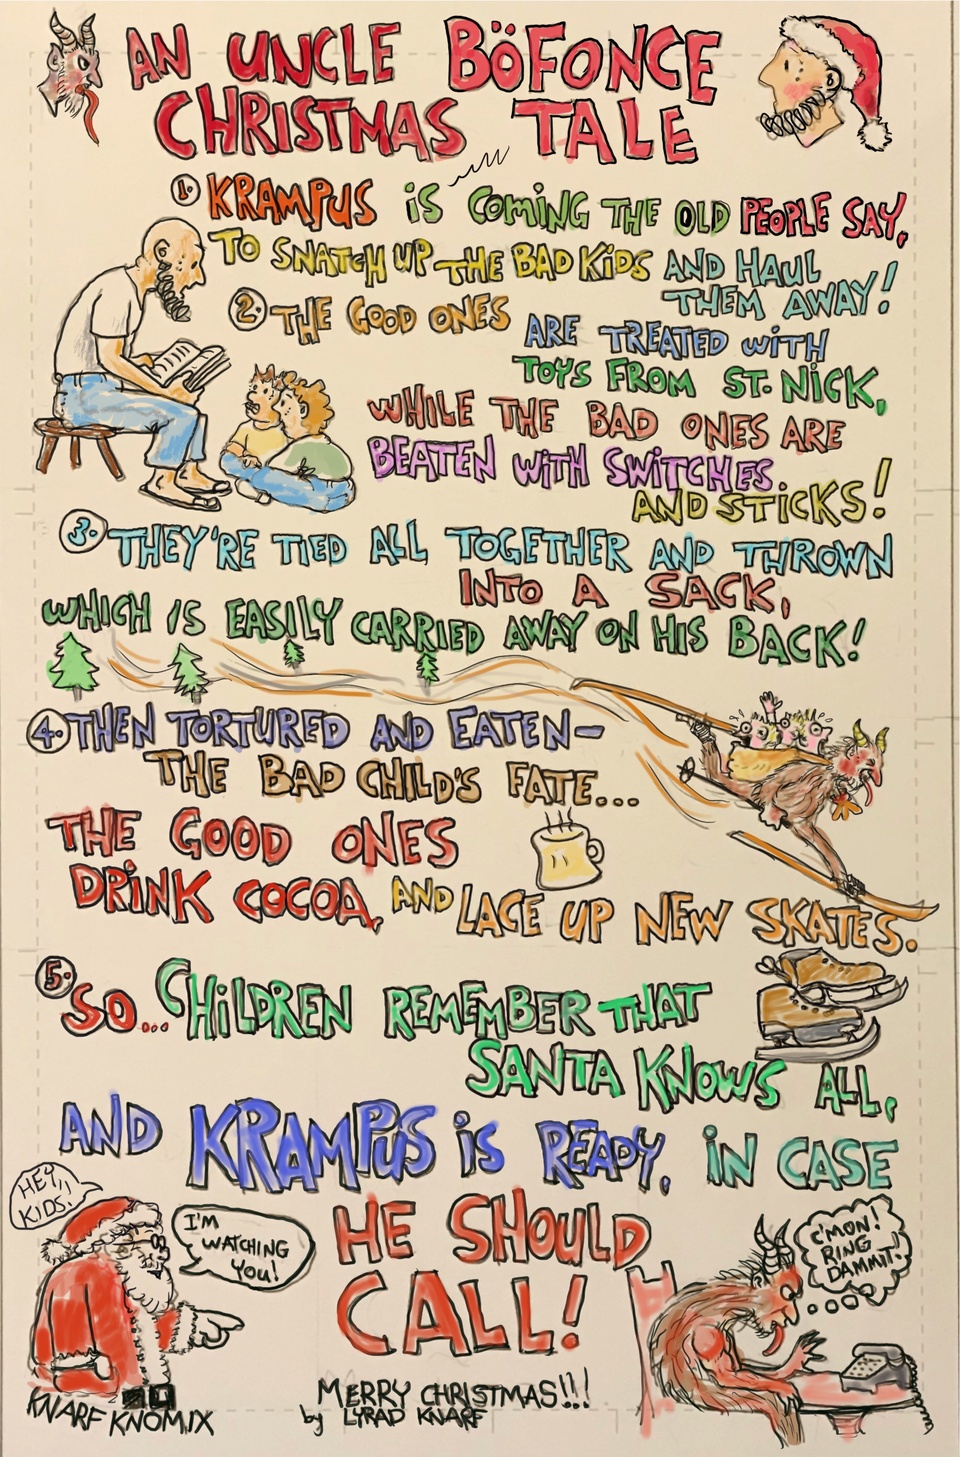 AN UNCLE BÖFONCE
CHRISTMAS TALE
1. KRAMPUS iS COMiNG THE OLD PEOPLE SAY,
TO SNATCH UP THE BAD KiDS AND HAUL
THEM AWAY!
2. THE GOOD ONES
ARE TREATED WiTH
TOYS FROM ST. NiCK,
WHiLE THE BAD ONES ARE
BEATEN WiTH SWiTCHES
AND STiCKS!
3. THEY'RE TIED ALL TOGETHER AND THROWN
INTO A SACK,
WHICH IS EASILY CARRIED AWAY ON HIS BACK!
4. THEN TORTURED AND EATEN-
THE BAD CHILD'S FATE...
THE GOOD ONES
DRiNK COCOA, AND LACE UP NEW SKATES.
5. SO... CHiLDREN REMEMBER THAT
SANTA KNOWS ALL,
AND KRAMPUS iS READY, iN CASE
HE SHOULD
CALL!
HEY,
KIDS!
I'M
WATCHING
YOU!
C'MON!
RING
DAMMIT!
KNARF KNOMIX
MERRY CHRISTMAS!!!
by LYRAD KNARF